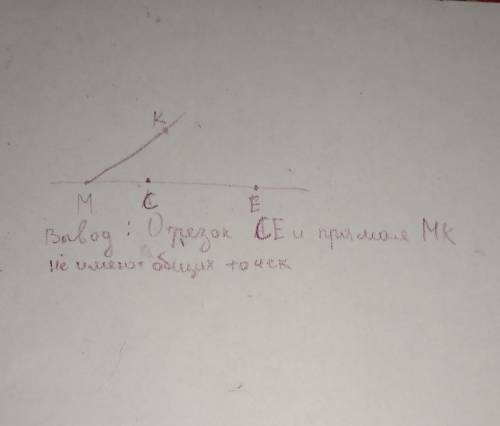 K
M C E
Вывод: Отрезок CE и прямая MK
не имеют общих точек